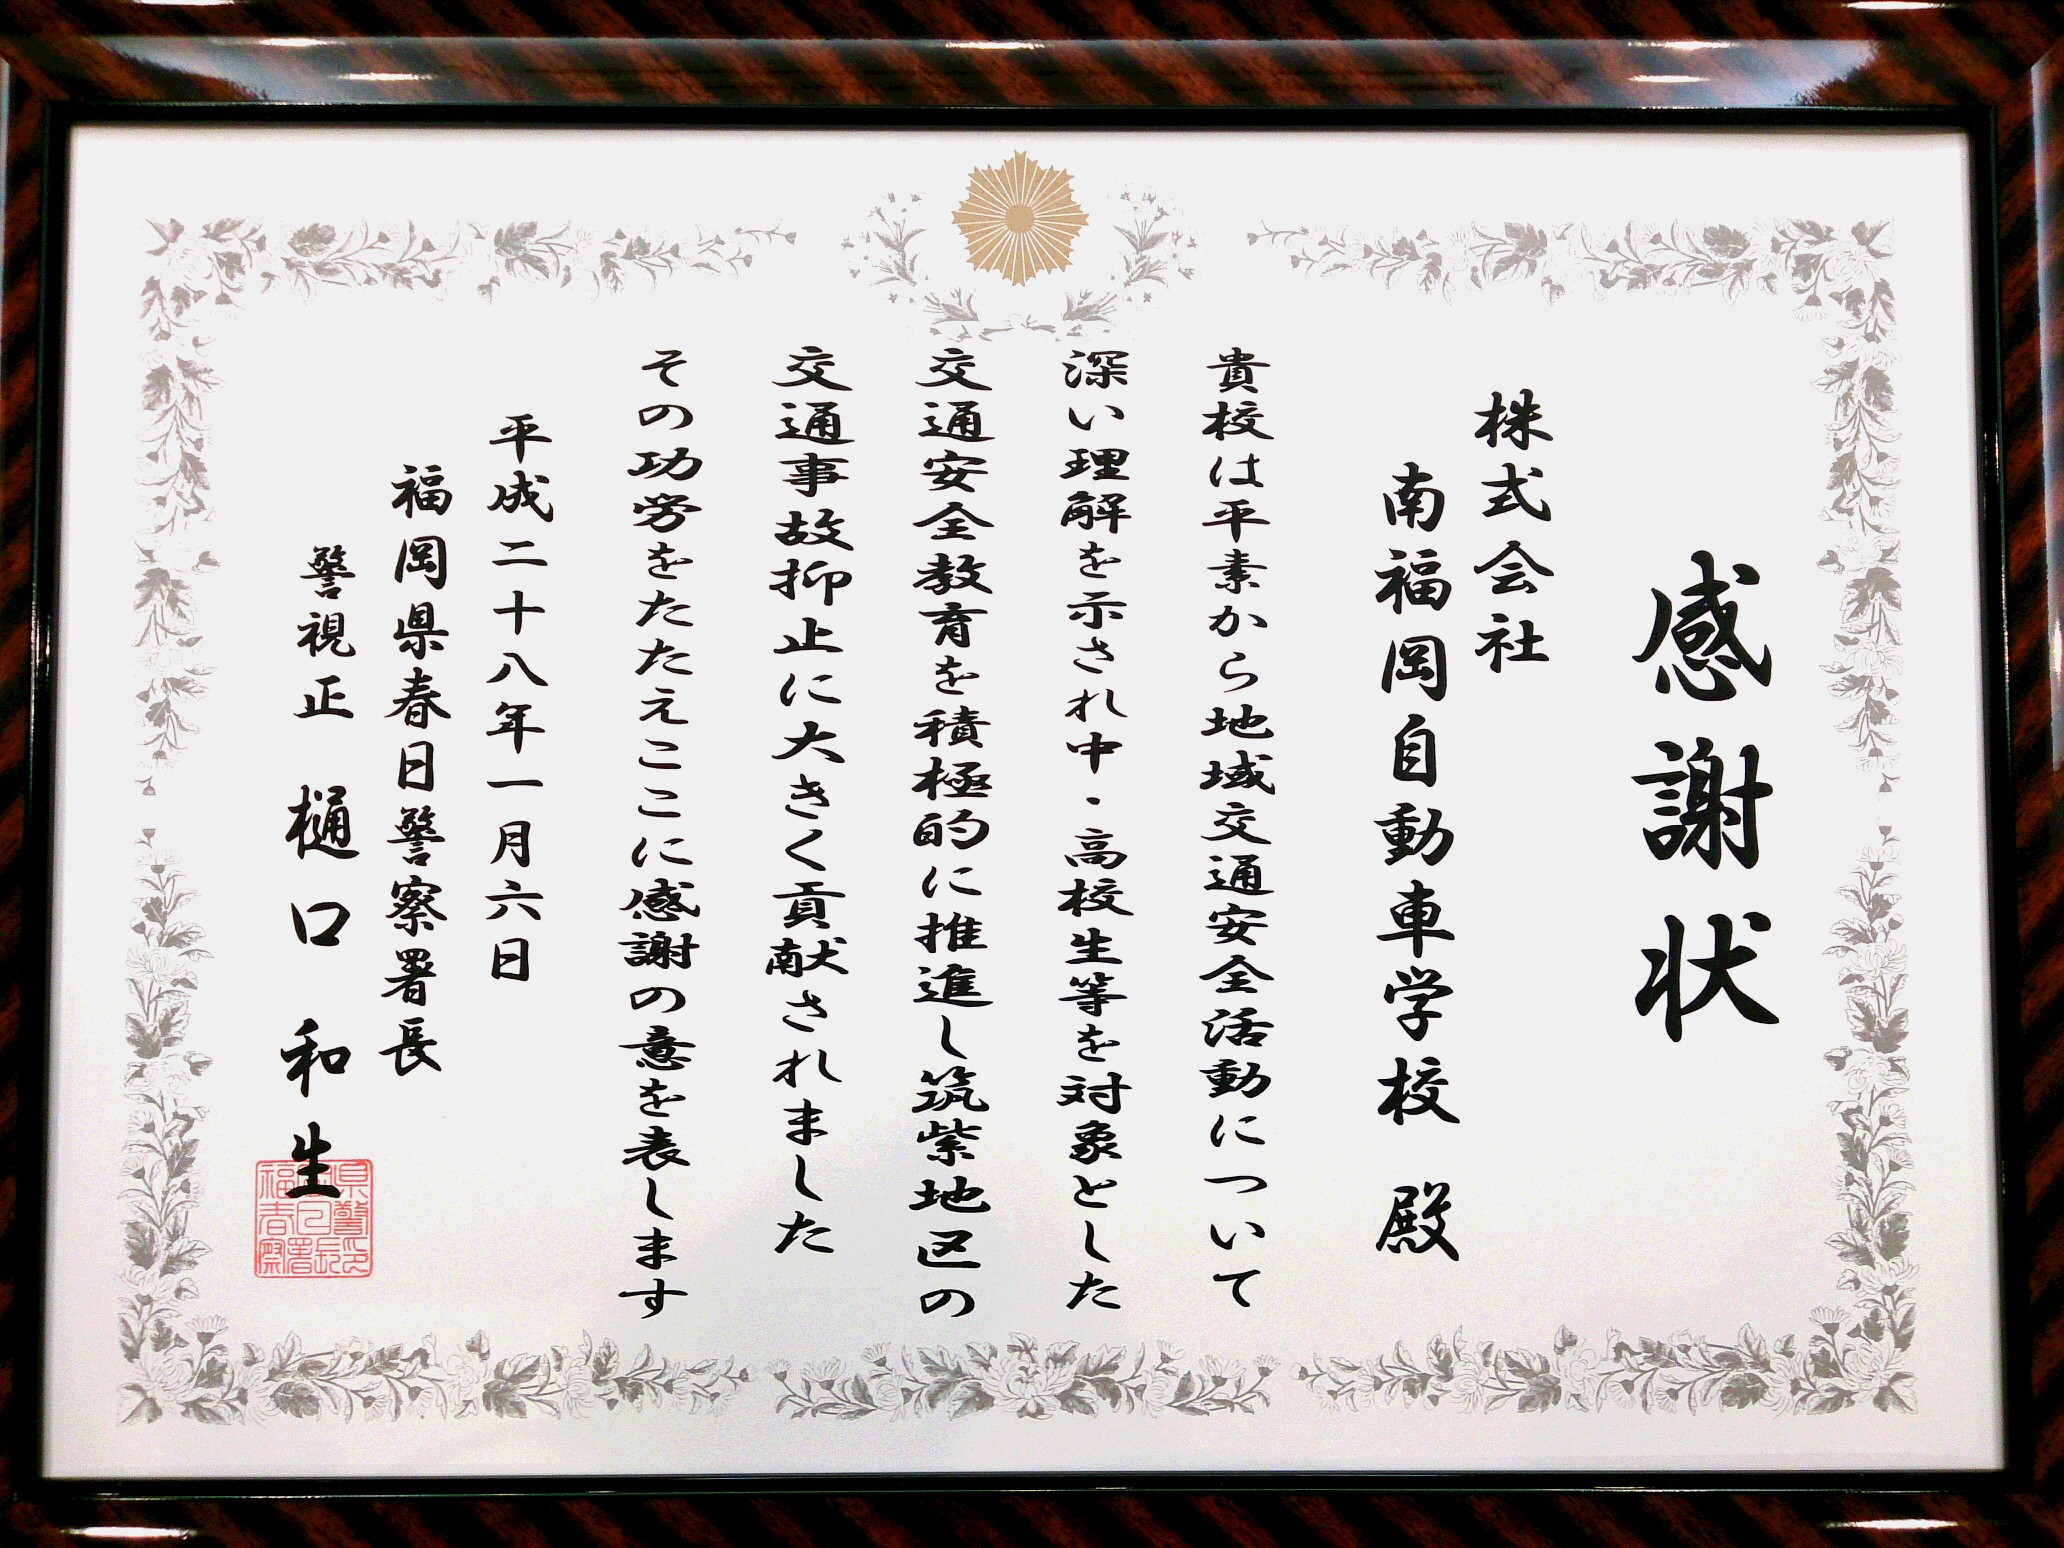 感謝状
株式会社
南福岡自動車学校 殿
貴校は平素から地域交通安全活動について
深い理解を示され中・高校生等を対象とした
交通安全教育を積極的に推進し筑紫地区の
交通事故抑止に大きく貢献されました
その功労をたたえここに感謝の意を表します
平成二十八年一月六日
福岡県春日警察署長
警視正 樋口和生